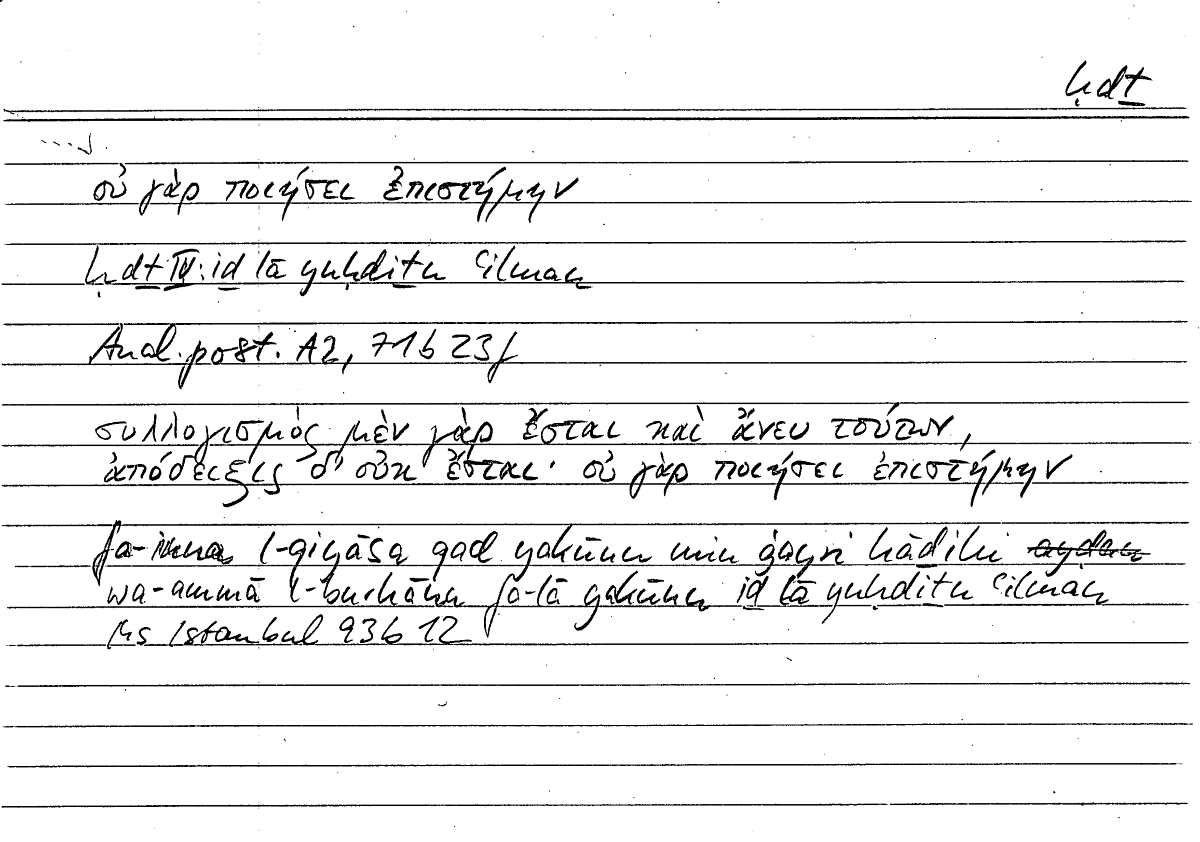 ḥdṯ
οὐ γὰρ ποιήσει ἐπιστήμην
ḥdṯ IV: iḏ lā yuḥdiṯu ʿilman
Anal. post. A2, 71b 23f
συλλογισμὸς μὲν γὰρ ἔσται καὶ ἄνευ τούτων,
ἀπόδειξις δ' οὐκ ἔσται· οὐ γὰρ ποιήσει ἐπιστήμην
fa-inna l-qiyāsa qad yakūnu min ġayri hāḏihi
wa-ammā l-burhānu fa-lā yakūnu iḏ lā yuḥdiṯu ʿilman
Ms Istanbul 93b 12